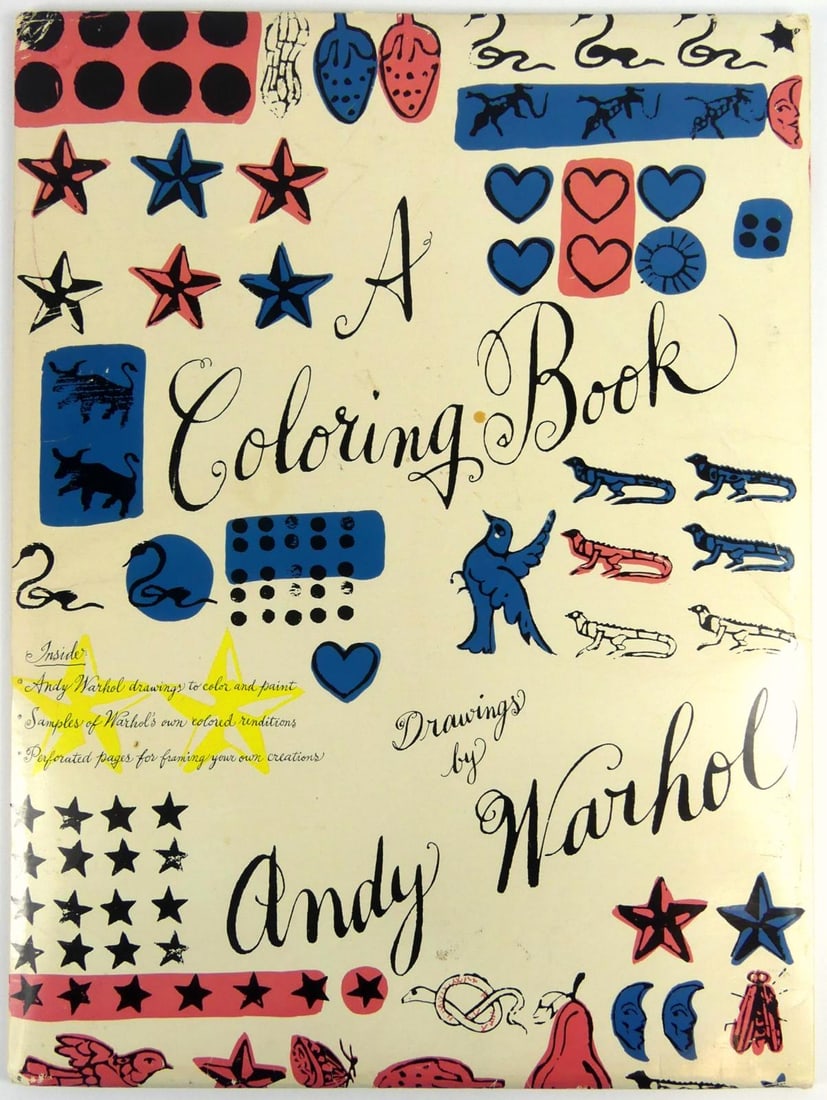 A
Coloring Book
Inside:
• Andy Warhol drawings to color and paint
• Samples of Warhol's own colored renditions
• Perforated pages for framing your own creations
Drawings
by
Andy Warhol